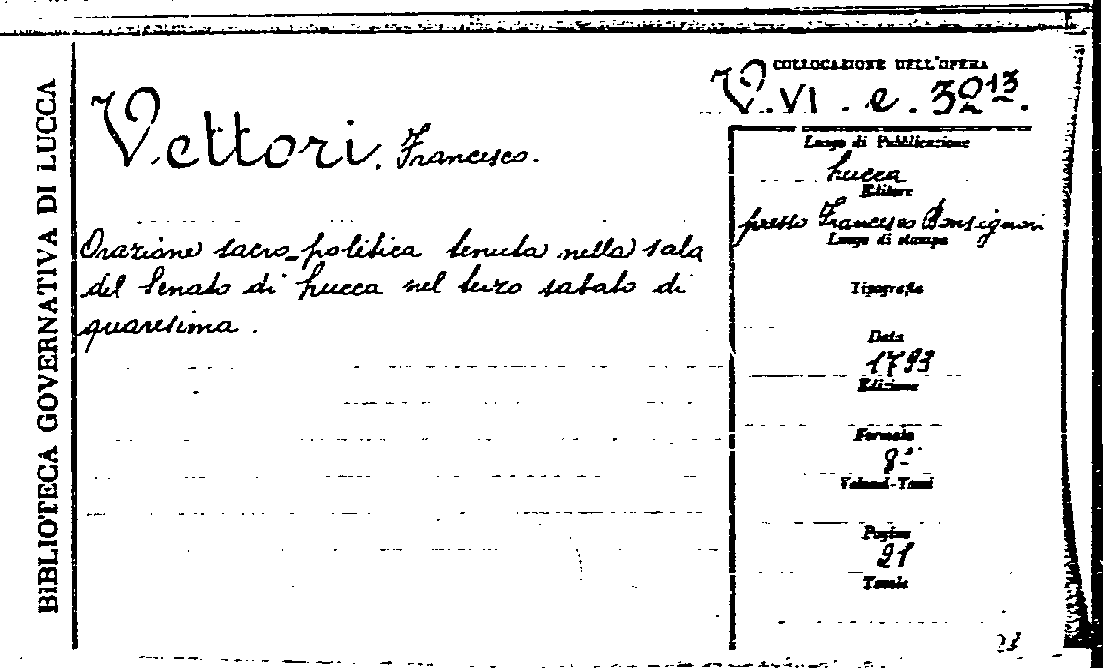 BIBLIOTECA GOVERNATIVA DI LUCCA
Vettori, Francesco.
Orazione sacro-politica tenuta nella sala
del Senato di Lucca nel terzo sabato di
quaresima.
COLLOCAZIONE DELL'OPERA
V. VI. e. 32 13.
Luogo di Pubblicazione
Lucca
Editore
presso Francesco Bonsignori
Luogo di stampa
Tipografia
Data
1793
Edizione
Formato
8°
Volumi-Tomi
Pagine
21
Tavole